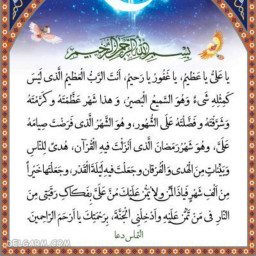 بِسْمِ اللهِ الرَّحْمٰنِ الرَّحِیْمِ
یا عَلِیُّ یا عَظیمُ، یا غَفُورُ یا رَحیمُ، اَنْتَ الرَّبُّ الْعَظیمُ الَّذی لَیْسَ
کَمِثْلِهِ شَیْءٌ وَهُوَ السَّمیعُ الْبَصیرُ، وَ هذا شَهْرٌ عَظَّمْتَهُ وَ کَرَّمْتَهُ
وَ شَرَّفْتَهُ وَ فَضَّلْتَهُ عَلَی الشُّهُورِ، وَ هُوَ الشَّهْرُ الَّذی فَرَضْتَ صِیامَهُ
عَلَیَّ، وَهُوَ شَهْرُ رَمَضانَ الَّذی اَنْزَلْتَ فیهِ الْقُرْآنَ، هُدیً لِلنّاسِ
وَ بَیِّناتٍ مِنَ الْهُدی وَ الْفُرْقانِ وَ جَعَلْتَ فیهِ لَیْلَةَ الْقَدْرِ، وَ جَعَلْتَها خَیْراً
مِنْ اَلْفِ شَهْرٍ فَیاذَا الْمَنِّ وَ لا یُمَنُّ عَلَیْکَ مُنَّ عَلَیَّ بِفَکاکِ رَقَبَتی مِنَ
النّارِ فی مَنْ تَمُنُّ عَلَیْهِ وَ اَدْخِلْنِی الْجَنَّةَ، بِرَحْمَتِکَ یا اَرْحَمَ الرّاحِمینَ.
التماس دعا